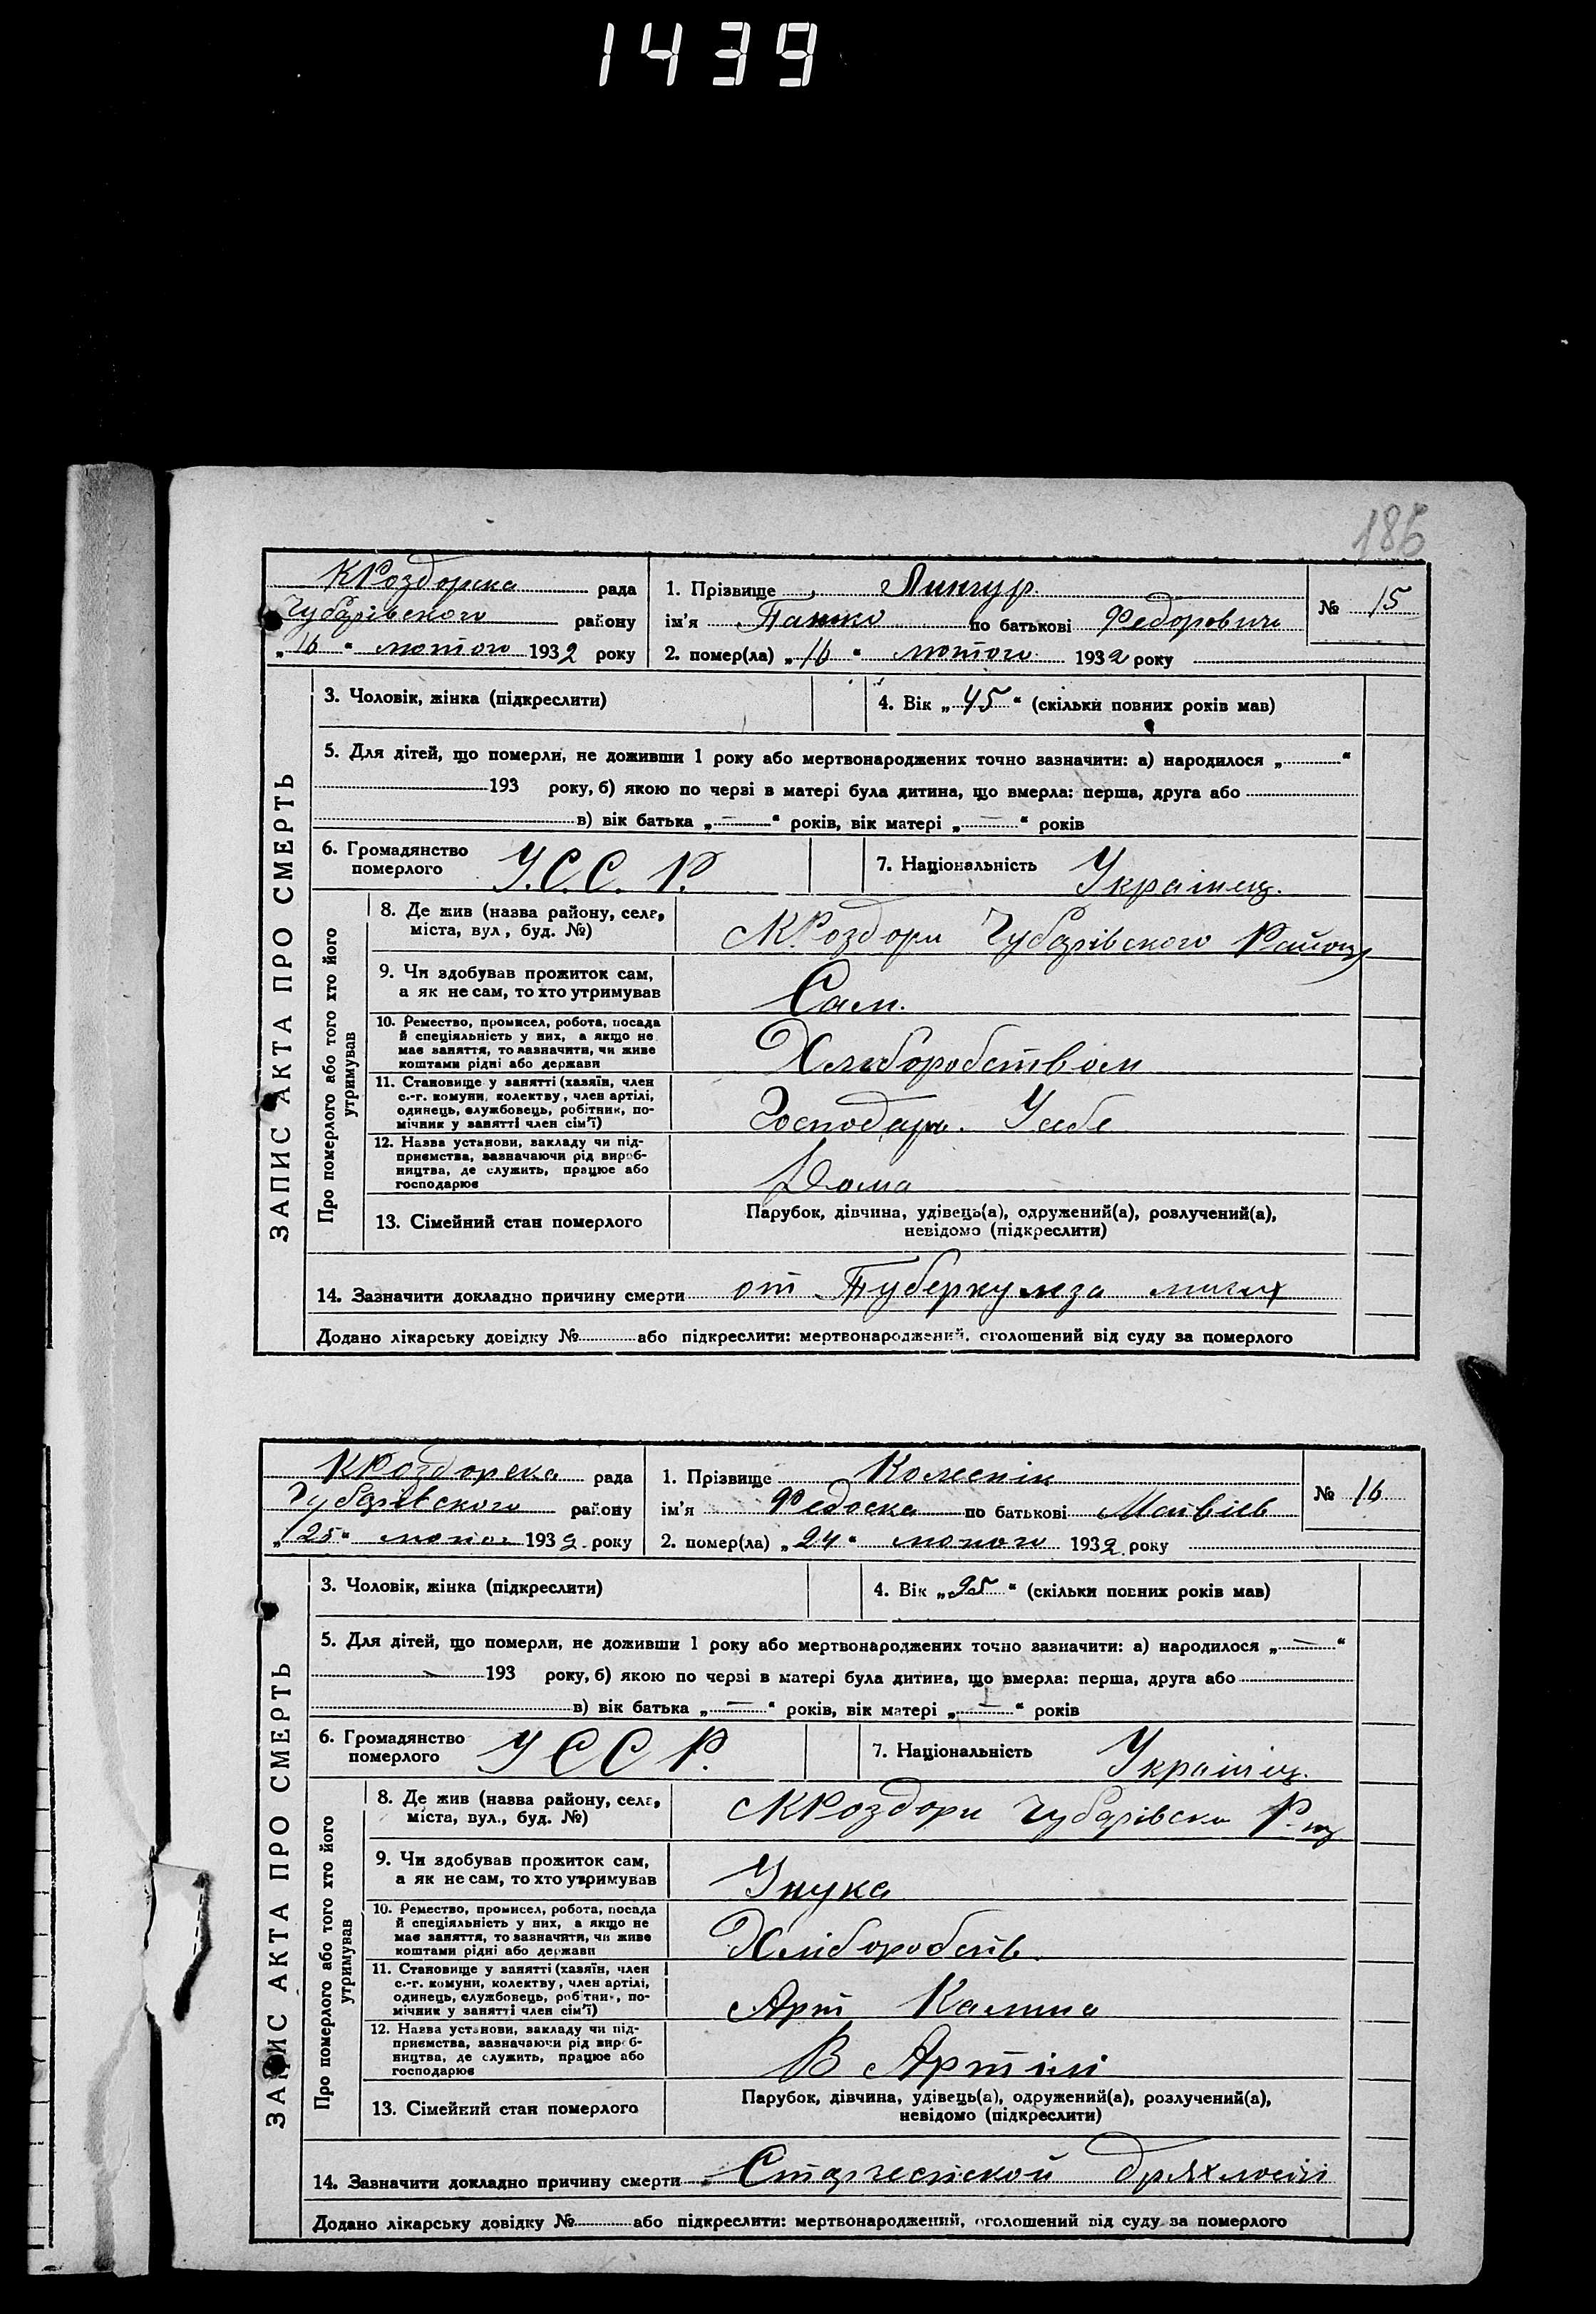 1439
186
КРоздорска рада
Чубарівського району
„16“ лютого 1932 року
1. Прізвище Лингур
ім'я Панько по батькові Федорович
2. помер(ла) „16“ лютого 1932 року
№ 15
ЗАПИС АКТА ПРО СМЕРТЬ
3. Чоловік, жінка (підкреслити)
4. Вік „45“ (скільки повних років мав)
5. Для дітей, що померли, не доживши 1 року або мертвонароджених точно зазначити: а) народилося „ “
193 року, б) якою по черзі в матері була дитина, що вмерла: перша, друга або
в) вік батька „—“ років, вік матері „—“ років
6. Громадянство померлого У.С.С.Р.
7. Національність Українец.
Про померлого або того хто його утримував
8. Де жив (назва району, села,
міста, вул, буд. №)
КРоздори Чубарівського Району
9. Чи здобував прожиток сам,
а як не сам, то хто утримував
Сам.
10. Ремество, промисел, робота, посада
й спеціяльність у них, а якщо не
має заняття, то зазначити, чи живе
коштами рідні або держави
Хліборобством
11. Становище у занятті (хазяїн, член
с.-г. комуни, колектву, член артілі,
одинець, службовець, робітник, по-
мічник у занятті член сім'ї)
Господар. Усебе
12. Назва установи, закладу чи під-
приємства, зазначаючи рід вироб-
ництва, де служить, працює або
господарює
Дома
13. Сімейний стан померлого
Парубок, дівчина, удівець(а), одружений(а), розлучений(а),
невідомо (підкреслити)
14. Зазначити докладно причину смерти от Туберкулза
Додано лікарську довідку № або підкреслити: мертвонароджений, оголошений від суду за померлого
КРоздорска рада
Чубарівського району
„25“ лютог 1932 року
1. Прізвище
ім'я Федоска по батькові Матвіев
2. помер(ла) „24“ лютого 1932 року
№ 16
ЗАПИС АКТА ПРО СМЕРТЬ
3. Чоловік, жінка (підкреслити)
4. Вік „95“ (скільки повних років мав)
5. Для дітей, що померли, не доживши 1 року або мертвонароджених точно зазначити: а) народилося „—“
193 року, б) якою по черзі в матері була дитина, що вмерла: перша, друга або
в) вік батька „—“ років, вік матері „—“ років
6. Громадянство померлого УССР.
7. Національність Українец.
Про померлого або того хто його утримував
8. Де жив (назва району, села,
міста, вул., буд. №)
КРоздори Чубарівськ Р-ну
9. Чи здобував прожиток сам,
а як не сам, то хто утримував
Унука
10. Ремество, промисел, робота, посада
й спеціяльність у них, а якщо не
має заняття, то зазначити, чи живе
коштами рідні або держави
Хліборобств.
11. Становище у занятті (хазяїн, член
с.-г. комуни, колектву, член артілі,
одинець, службовець, робітник, по-
мічник у занятті член сім'ї)
Арт
12. Назва установи, закладу чи під-
приємства, зазначаючи рід вироб-
ництва, де служить, працює або
господарює
В Артілі
13. Сімейний стан померлого
Парубок, дівчина, удівець(а), одружений(а), розлучений(а),
невідомо (підкреслити)
14. Зазначити докладно причину смерти Старческой дряхлості
Додано лікарську довідку № або підкреслити: мертвонароджений, оголошений від суду за померлого